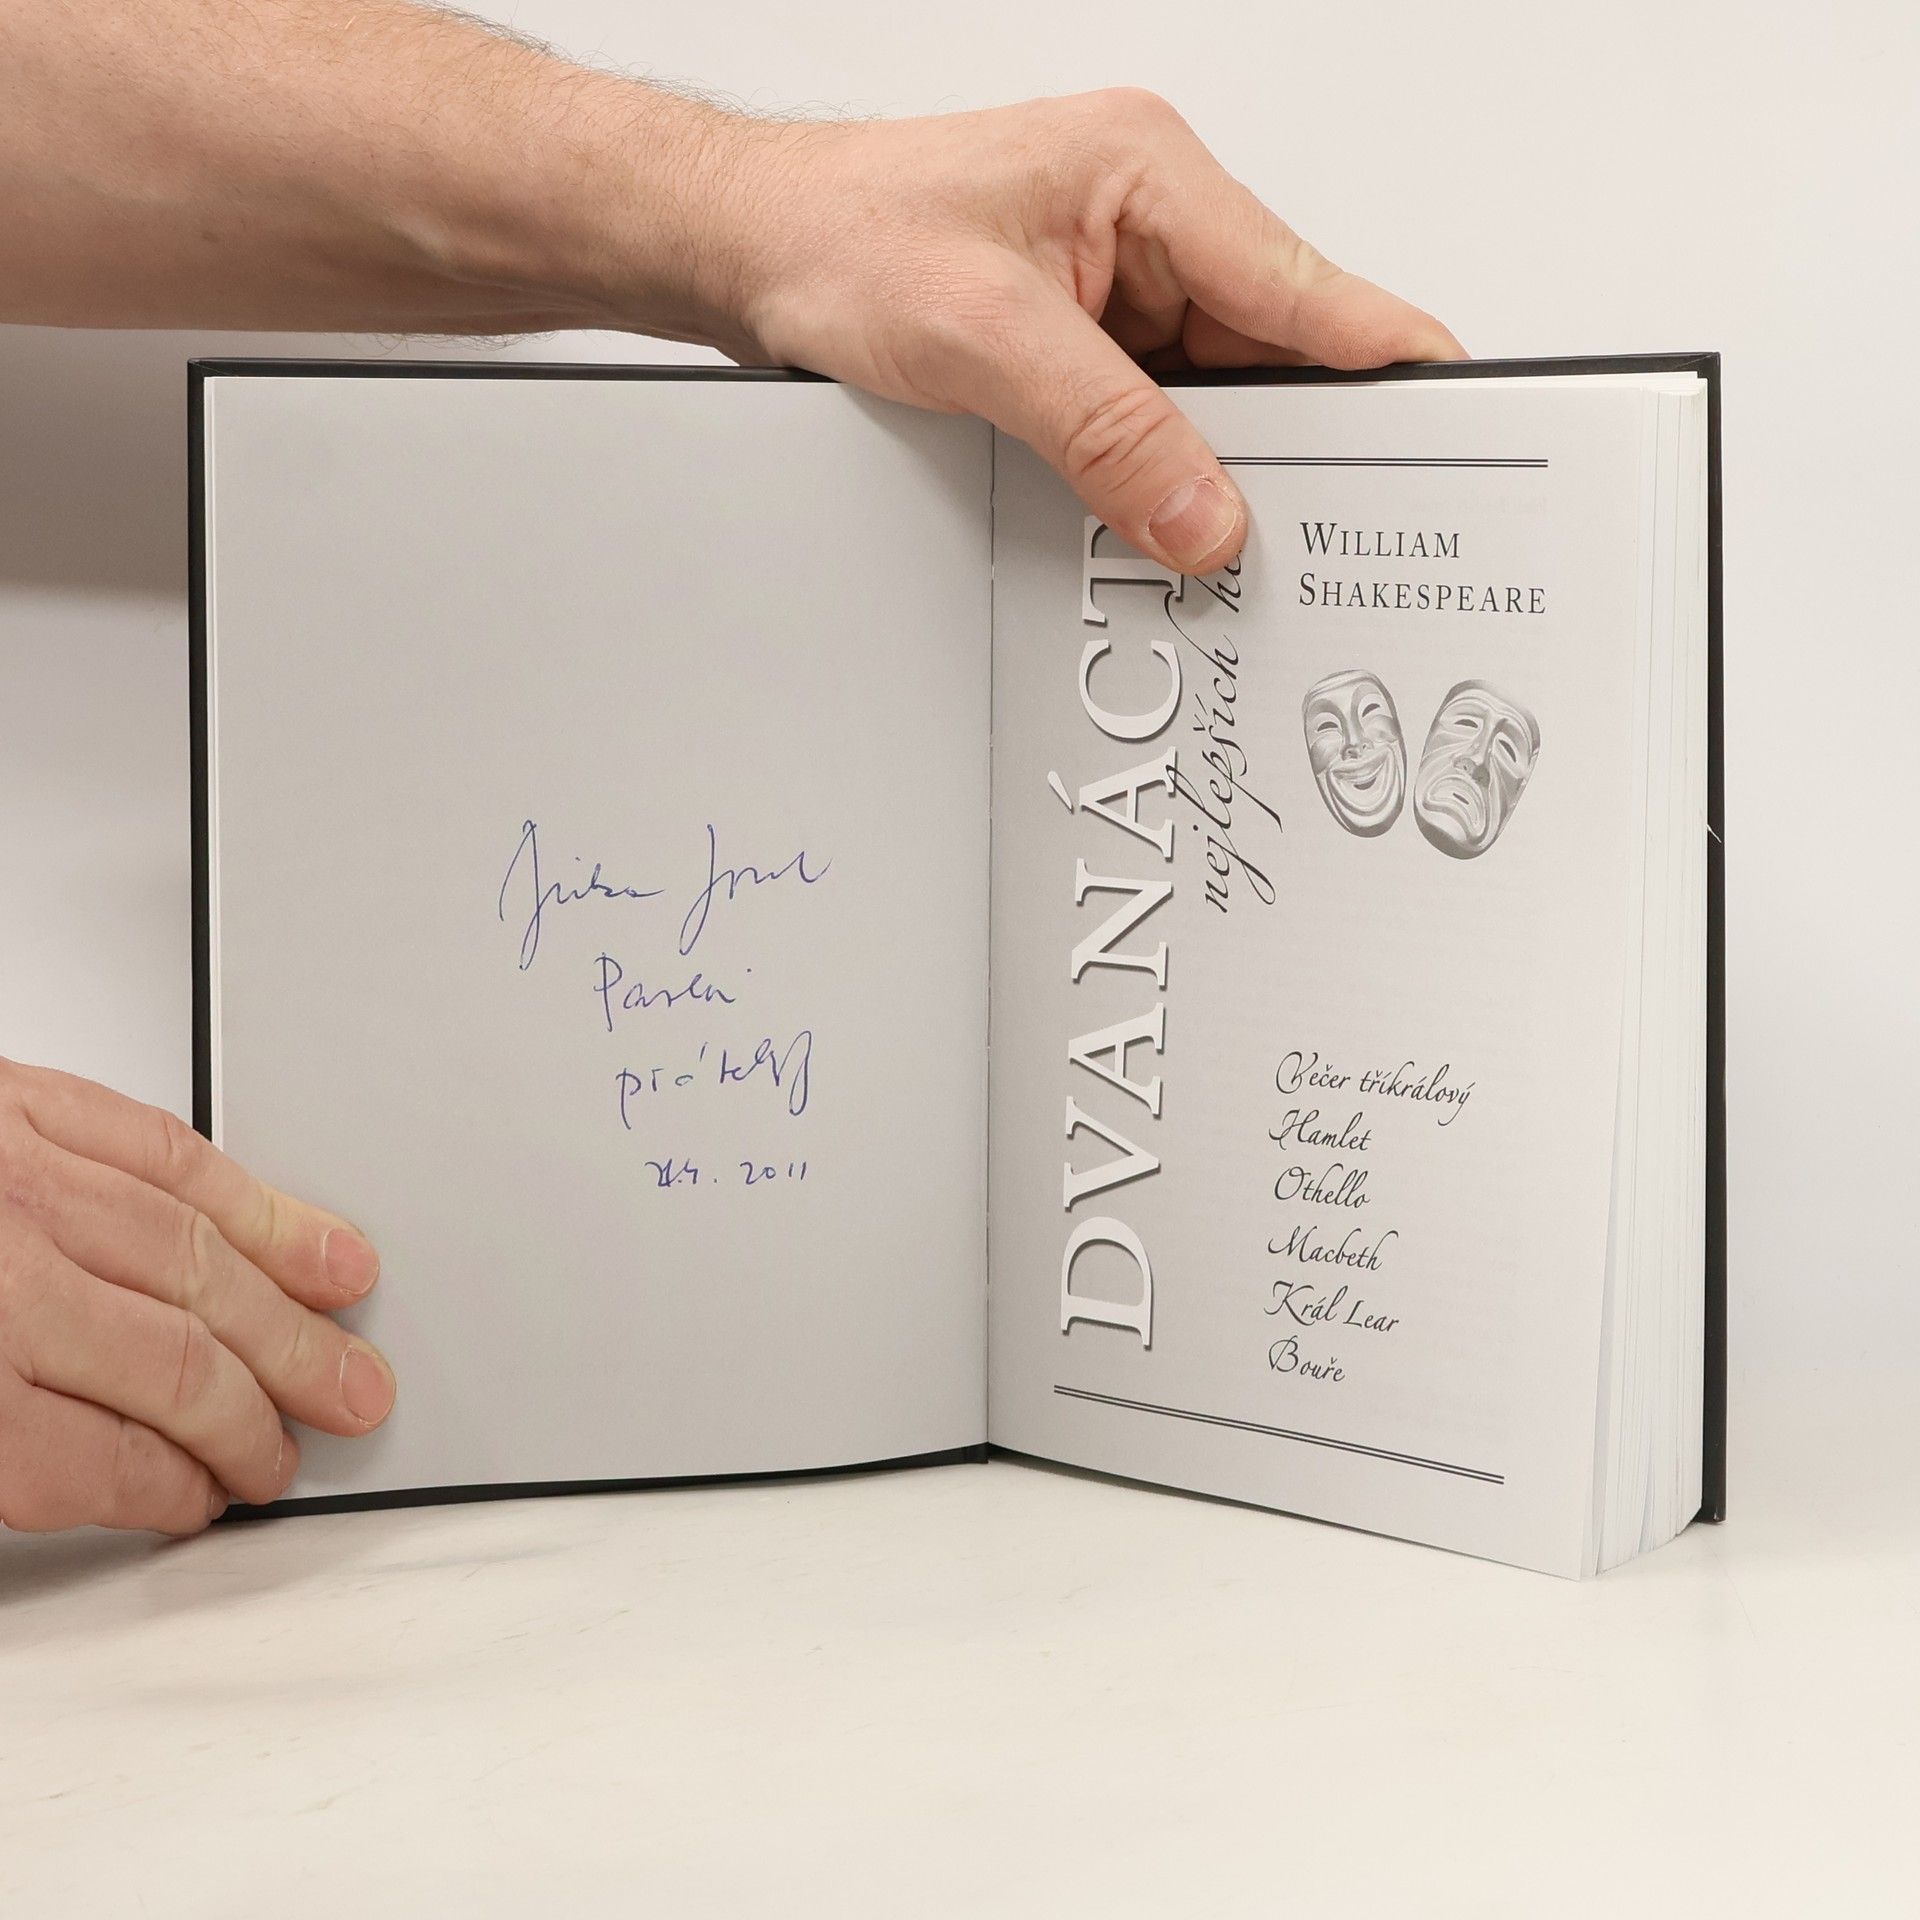 Jirka Josek
Pavlovi
přátelsky
21.4. 2011
DVANÁCT
nejlepších
WILLIAM
SHAKESPEARE
Večer tříkrálový
Hamlet
Othello
Macbeth
Král Lear
Bouře